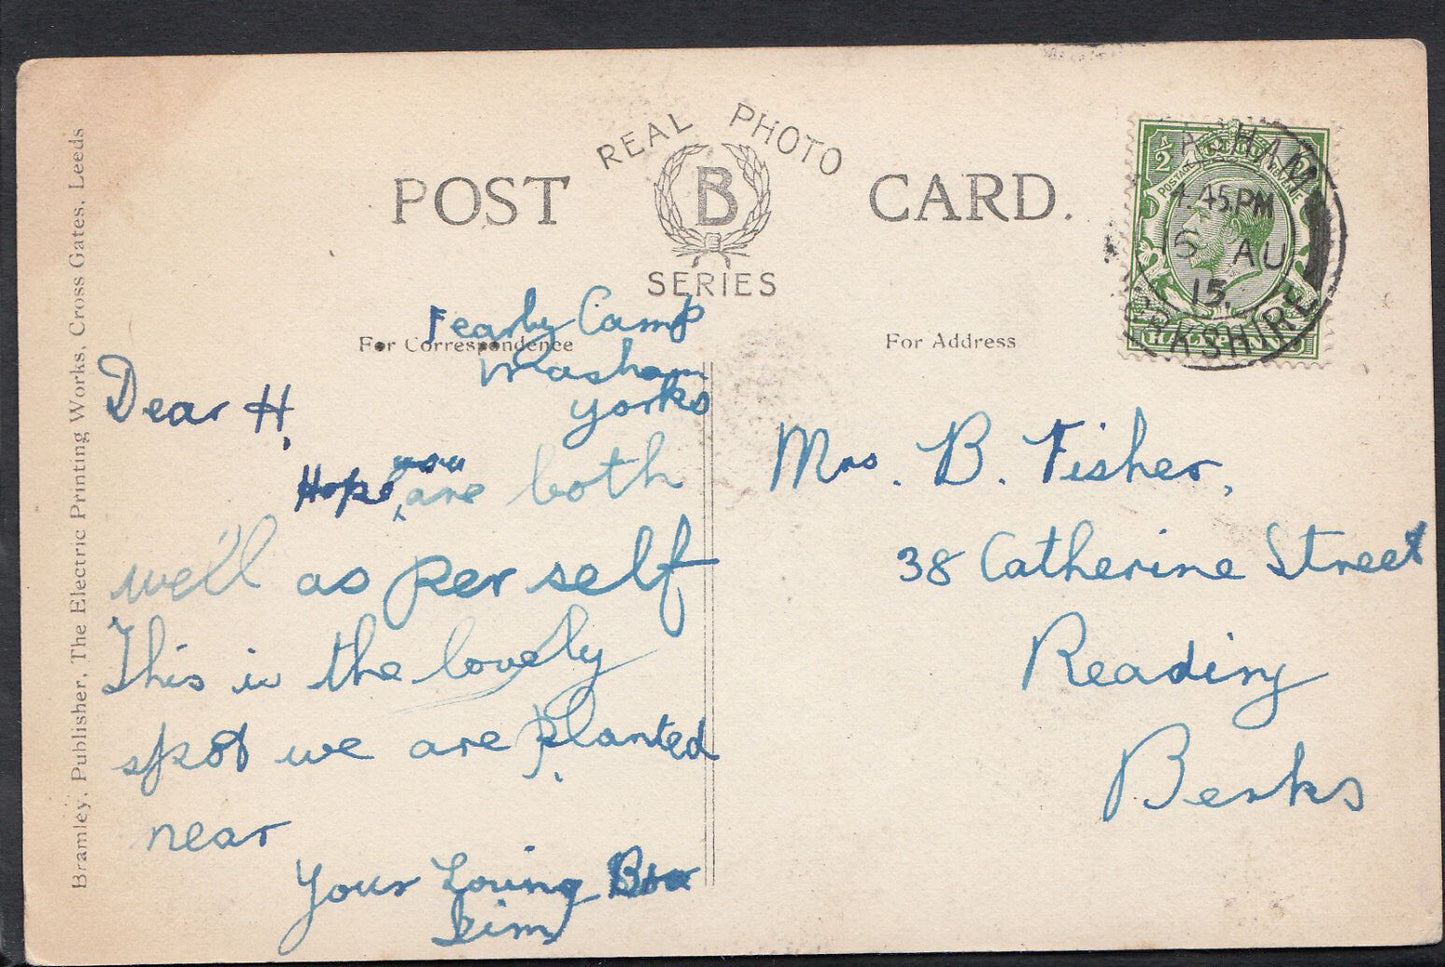 REAL PHOTO
POST B CARD.
SERIES
For Correspondence
For Address
Bramley, Publisher, The Electric Printing Works, Cross Gates, Leeds
Fearby Camp
Masham
Yorks
Dear H,
Hope you are both
well as per self
This is the lovely
spot we are planted
near
Your Loving Bro
Jim
Mrs. B. Fisher,
38 Catherine Street
Reading
Berks
½
POSTAGE
HALFPENNY
MASHAM
4.45 PM
15 AU
15
YORKSHIRE